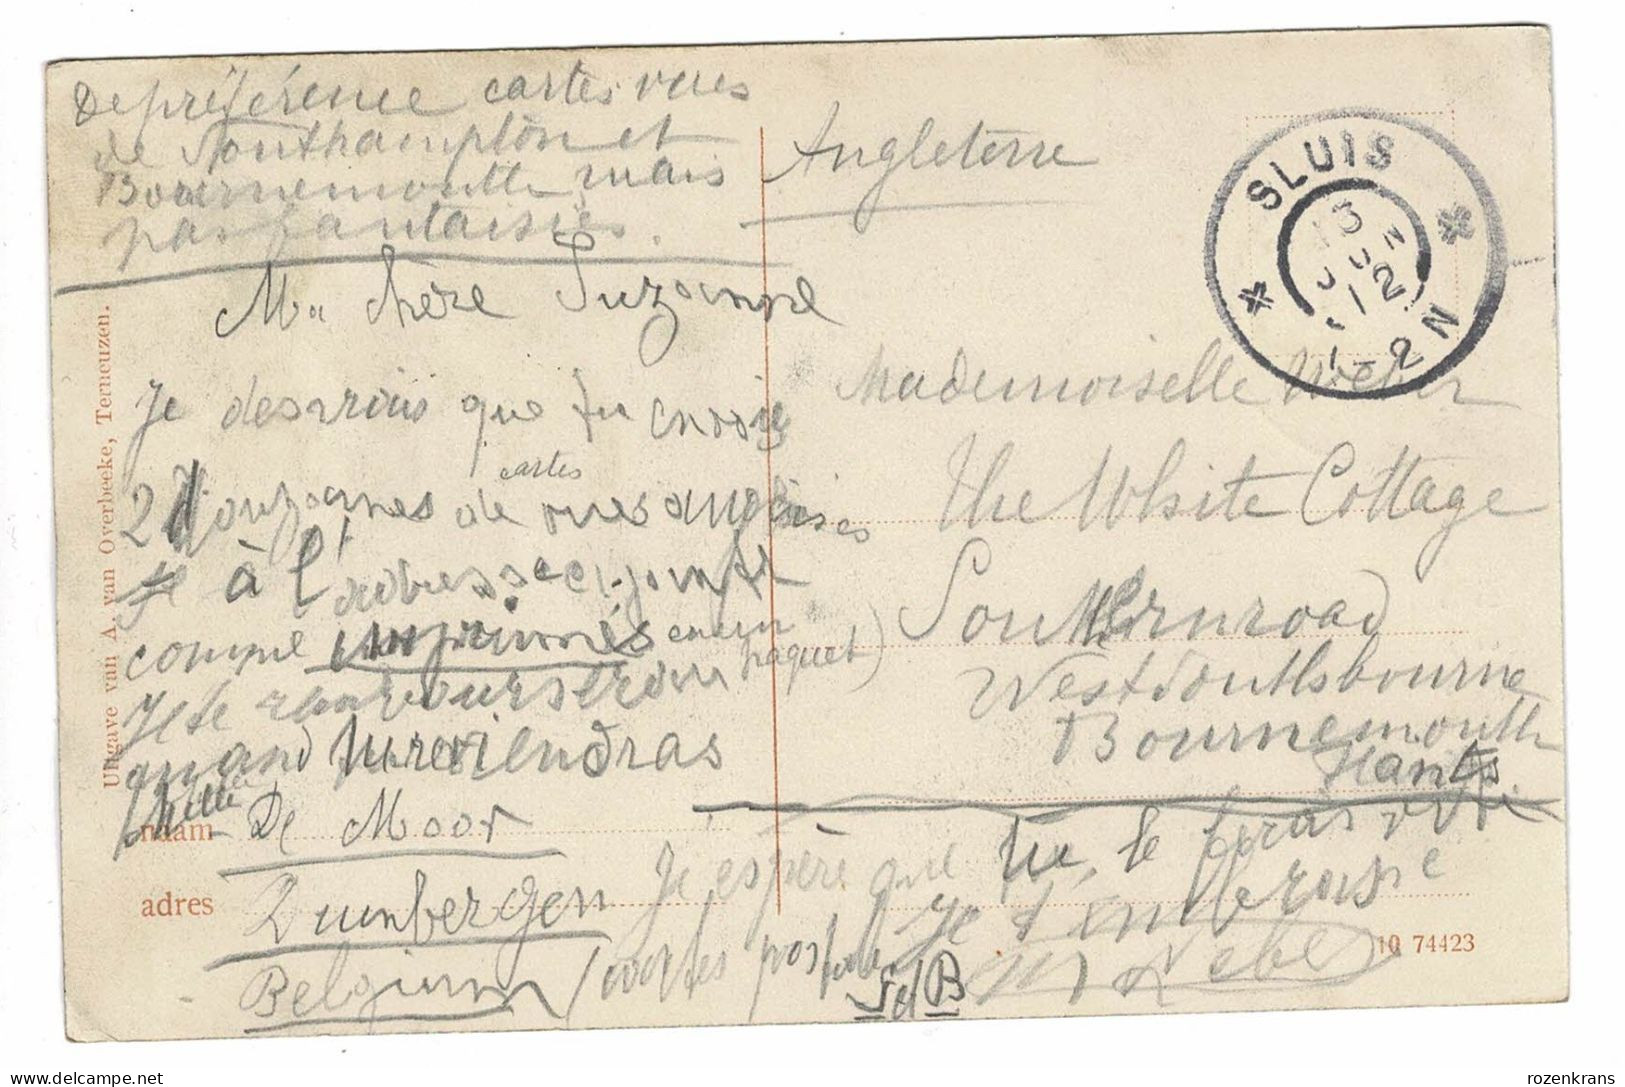 De préférence cartes vues
de Southampton et
Bournemouth mais
pas fantaisies.
Ma chère Suzanne
Je desirois que tu envoie
2 douzaines de cartes vues anglaises
à l'adresse ci-jointe
comme imprimés (en un
paquet)
Je te rembourserai
quand tu reviendras
naam De Moor
adres Dumbergen
Belgium
Uitgave van A. van Overbeeke, Terneuzen.
Angleterre
SLUIS
13
JUN
12
1-2N
Mademoiselle Weber
The White Cottage
Southernroad
West Southsbourne
Bournemouth
Hants
Je espère que tu le feras vite
Je t'embrasse
M Weber
cartes postale
10 74423
rozenkrans